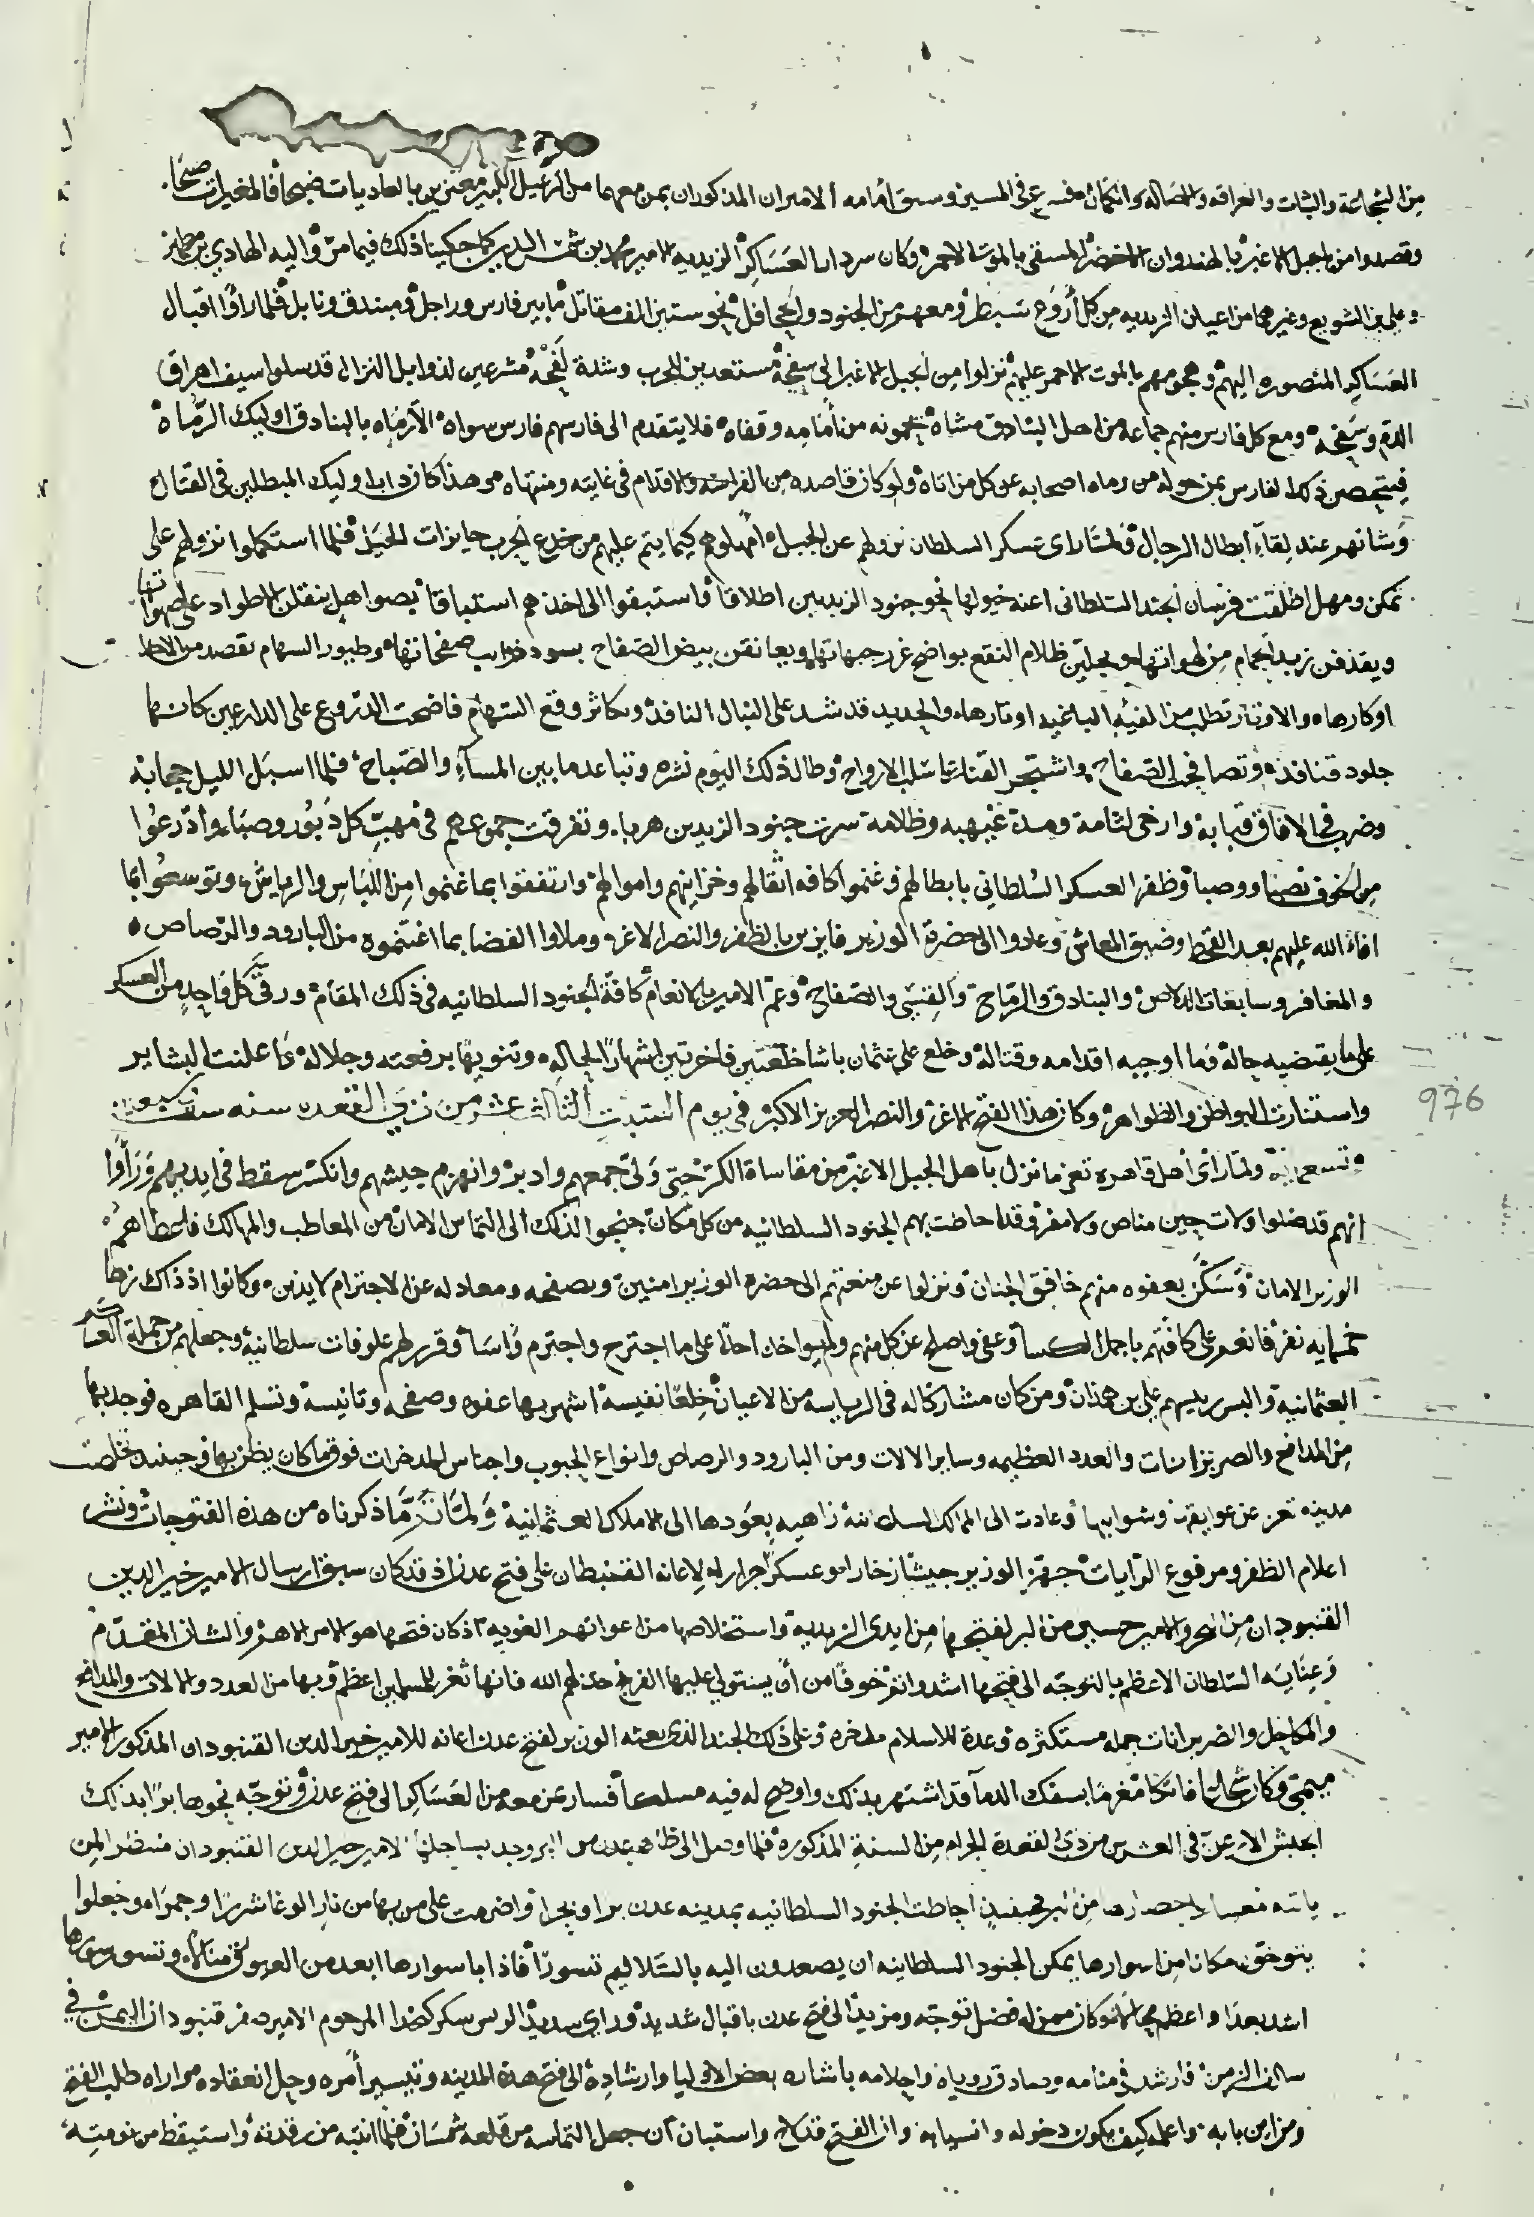 من الشجاعة والثبات والعراقه والاصاله واتكان نفسه على في المسير وسبق أمامه الاميران المذكوران بمن معهما من الرعيل الكبير مغترين بالعاديات ضبحا فالمغيرات صبحا
وقصدوا من بالجبل الاغبر بالهندوان الاخضر المسقى بالموت الاحمر وكان سردار العساكر الزيديه الامير محمد بن شمس الدين كما حكينا ذلك فيما مر واليه الهادي بن
وعلي بن الشويع وغيرهما من اعيان الزيديه من كل أروع سبطر ومعهم من الجنود والجحافل نحو ستين الف مقاتل ما بين فارس وراجل ومبندق ونابل فلما راوا اقبال
العساكر المنصوره اليهم وهجومهم بالموت الاحمر عليهم نزلوا من الجبل الاغبر الى سفحه مستعدين للحرب وشدة لفحه مشرعين لذوابل النزال قد سلوا سيف اهراق
الدم وسفحه ومع كل فارس منهم جماعه من اهل البنادق مشاه يحمونه من أمامه وقفاه فلا يتقدم الى فارسهم فارس سواه الا رماه بالبنادق اوليك الرماه
فيتحصن ذلك الفارس بمن حوله من رماه اصحابه عن كل من اتاه ولو كان قاصده من الفراسه والاقدام في غايته ومنتهاه وهذا كان داب اوليك المبطلين في القتال
وشانهم عند لقاء ابطال الرجال فلما راى عسكر السلطان نزولهم عن الجبل أمهلوهم كيما يتم عليهم من خدع الحرب حايزات الحيل فلما استكملوا نزولهم على
تمكن ومهل اطلقت فرسان الجند السلطانى اعنه خيولها نحو جنود الزيديين اطلاقا فاستبقوا الى اخذهم استباقا بصواهل ينقلن الاطواد على صهواتها
ويقذفن زبد الحمام من لهواتها ويجلين ظلام النقع بواضح غرر جبهاتها ويعانقن بيض الصفاح بسود صفحاتها وطيور السهام تقصد من
اوكارها والاوتار تطلب من الفيه الباغيه اوتارها والحديد قد شد على النبال النافذ وتكاثر وقع السهام فاضحت الدروع على الدارعين كانها
جلود قنافذ وتصافحت الصفاح واشتجر القنا سلب الارواح وطال ذلك اليوم نشره وتباعد ما بين المسآء والصباح فلما اسبل الليل حجابه
وضرب في الافاق قبابه وارخى لثامه ومد غيهبه وظلامه سرت جنود الزيديين هربا وتفرقت جموعهم في مهب كل دبور وصبا وأدرعوا
من الخوف نصبا ووصبا وظفر العسكر السلطاني بابطالهم وغنموا كافه اثقالهم وخزاينهم واموالهم وارتفقوا بما غنموا من اللباس والرياش وتوسعوا بما
افاء الله عليهم بعد القحط وضيق المعاش وعادوا الى حضرة الوزير فايزين بالظفر والنصر الاغر وملاوا الفضا بما اغتنموه من البارود والرصاص
والمغافر وسابغات الدلاص والبنادق والرماح والقسي والصفاح وعم الامير بالانعام كافة الجنود السلطانيه في ذلك المقام ورقى كل واحد من العسكر
على ما يقتضيه حاله وما اوجبه اقدامه وقتاله وخلع على عثمان باشا خلعتين فاخرتين اشهارا لحاله وتنويها برفعته وجلاله واعلنت البشاير
واستنارت البواطن والظواهر وكان هذا الفتح الاغر والنصر العزيز الاكبر في يوم السبت الثالث عشر من ذي القعده سنه ست سبعين
976
وتسعمايه ولما راى أهل قاهره تعز ما نزل باهل الجبل الاغبر من مقاساة الكر حتى ولى جمعهم وادبر وانهزم جيشهم وانكسر سقط في ايديهم ورأوا
انهم قد ضلوا ولات حين مناص ولا مفر وقد احاطت بهم الجنود السلطانيه من كل مكان جنحوا لذلك الى التماس الامان من المعاطب والمهالك فاعطاهم
الوزير الامان وسكن بعفوه منهم خافق الجنان ونزلوا عن منعتهم الى حضره الوزير امنين وبصفحه ومعادله عن الاجترام لايذين وكانوا اذ ذاك زها
خمسمايه نفر فانعم على كافتهم باجمل الكسا وعفى واصلح عن كل منهم ولم يواخذ احدا على ما اجترح واجترم واسا وقرر لهم علوفات سلطانيه وجعلهم من جملة العساكر
العثمانيه والبس رييسهم علي بن همدان ومن كان مشاركا له في الرياسه من الاعيان خلعا نفيسه اشهر بها عفوه وصفحه وتانيسه وتسلم القاهره فوجد بها
من المدافع والضربزانات والعدد العظيمه وساير الالات ومن البارود والرصاص وانواع الحبوب واجناس المدخرات فوق ما كان يظن بها فحينيذ تخلصت
مدينه تعز عن عوايقها وشوايبها وعادت الى الممالك السلطانيه زاهيه بعودها الى الاملاك العثمانيه ولما تم ما ذكرناه من هذه الفتوحات ونشر
اعلام الظفر ومرفوع الرايات جهز الوزير جيشا زخارا وعسكرا جرارا لاعانه القنبطان على فتح عدن اذ قد كان سبق ارسال الامير خير الدين
القنبودان من البحر والامير حسين من البر لفتحها من ايدى الزيديه واستخلاصها من اعوانهم الغويه اذ كان فتحها هو الامر الاهم والشان المقدم
وعنايه السلطان الاعظم بالتوجه الى فتحها اشد واتم خوفا من أن يستولي عليها الفرنج خذلهم الله فانها ثغر للمسلمين اعظم وبها من العدد والالات والمدافع
والمكاحل والضربزانات جمله مستكثره وعدة للاسلام مدخره وعلى ذلك الجند الذى بعثه الوزير لفتح عدن اعانه للامير خير الدين القنبودان المذكور الامير
ميمي وكان فاتكا مغرما بسفك الدما قد اشتهر بذلك واوضح له فيه مسلكا فسار بمن معه من العساكر الى فتح عدن وتوجه نحوها برا بذلك
الجيش الارعن في العشرين من ذي القعدة الحرام من السنة المذكوره فلما وصل الى ظاهر عدن من البر وجد بساحلها الامير خير الدين القنبودان منتظر المن
ياتيه لحصارها من البر فحينيذ احاطت الجنود السلطانيه بمدينه عدن برا وبحرا واضرمت على من بها من نار الوغا شررا وجمرا وجعلوا
يتوخون مكانا من اسوارها يمكن الجنود السلطانيه ان يصعدون اليه بالسلاليم تسورا فاذا باسوارها ابعد من العيوق منالا وتسور سورها
اشد بعدا واعظم محالا وكان ممن له فضل توجه ومزيد الى فتح عدن باقبال شديد وراي سديد الريس سكر كتخدا المرحوم الامير قنبودان اليمن في
سالف الزمن فارشد في منامه وصادق روياه واحلامه باشاره بعض الاوليا وارشاده الى فتح هذه المدينه وتيسير أمره وحل انعقاده واراه طلب الفتح
ومن اين بابه واعلمه كيف يكون دخوله وانسيابه وان الفتح قد واستبان ان جعل التماسه من قلعه شمسان فلما انتبه من رقدته واستيقظ من نومته